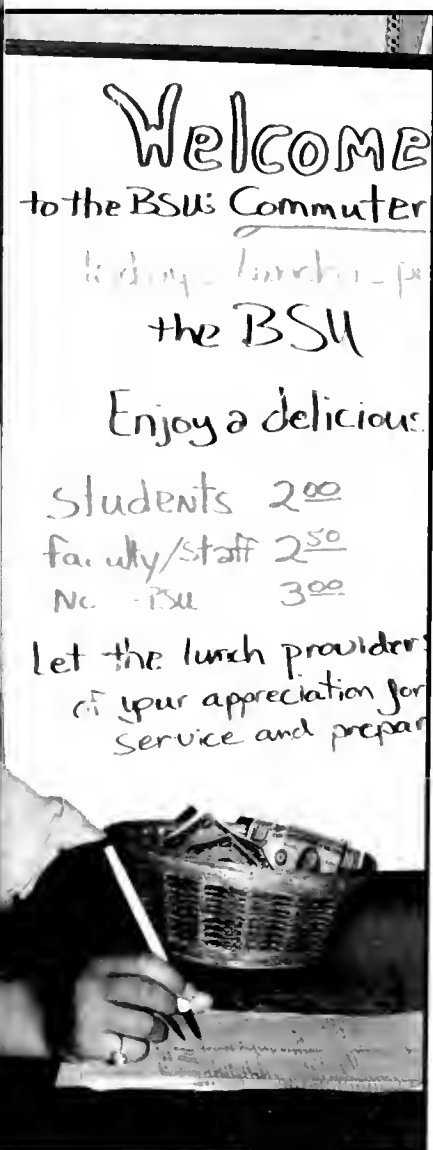 Welcome
to the BSU's Commuter
the BSU
Enjoy a delicious
Students 2⁰⁰
faculty/staff 2⁵⁰
3⁰⁰
Let the lunch providers
of your appreciation for
service and prepar